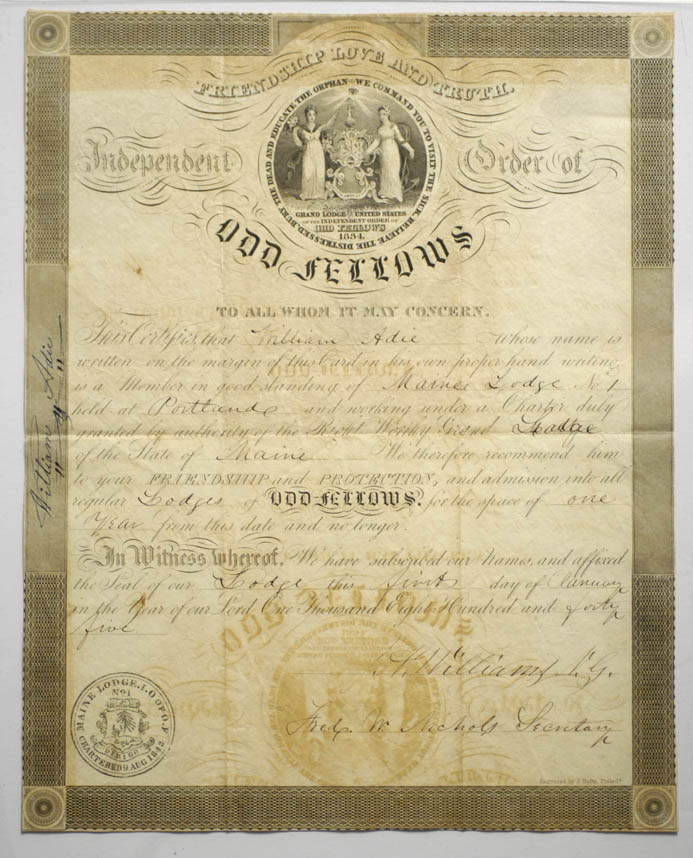 FRIENDSHIP LOVE AND TRUTH.
BURY THE DEAD AND EDUCATE THE ORPHAN WE COMMAND YOU TO VISIT THE SICK, RELIEVE THE DISTRESSED,
Independent Order of
GRAND LODGE OF THE UNITED STATES
OF THE INDEPENDENT ORDER OF
ODD FELLOWS
1834.
ODD FELLOWS
TO ALL WHOM IT MAY CONCERN.
This Certifies that William Adie Whose name is
written on the margin of this Card in his own proper hand writing
is a Member in good standing of Maine Lodge No 1
held at Portland and working under a Charter duly
granted by authority of the Right Worthy Grand Lodge
of the State of Maine We therefore recommend him
to your FRIENDSHIP and PROTECTION, and admission into all
regular Lodges of ODD FELLOWS. for the space of one
Year from this date and no longer.
In Witness whereof, We have subscribed our Names, and affixed
the Seal of our Lodge this first day of January
in the Year of our Lord One Thousand Eight Hundred and forty
five
Williams N.G.
Fredk W. Nichols Secretary
William Adie
MAINE LODGE. I.O OF O.F
No 1
DIRIGO
CHARTERED 9 AUG 1843
Engraved by J. Philada